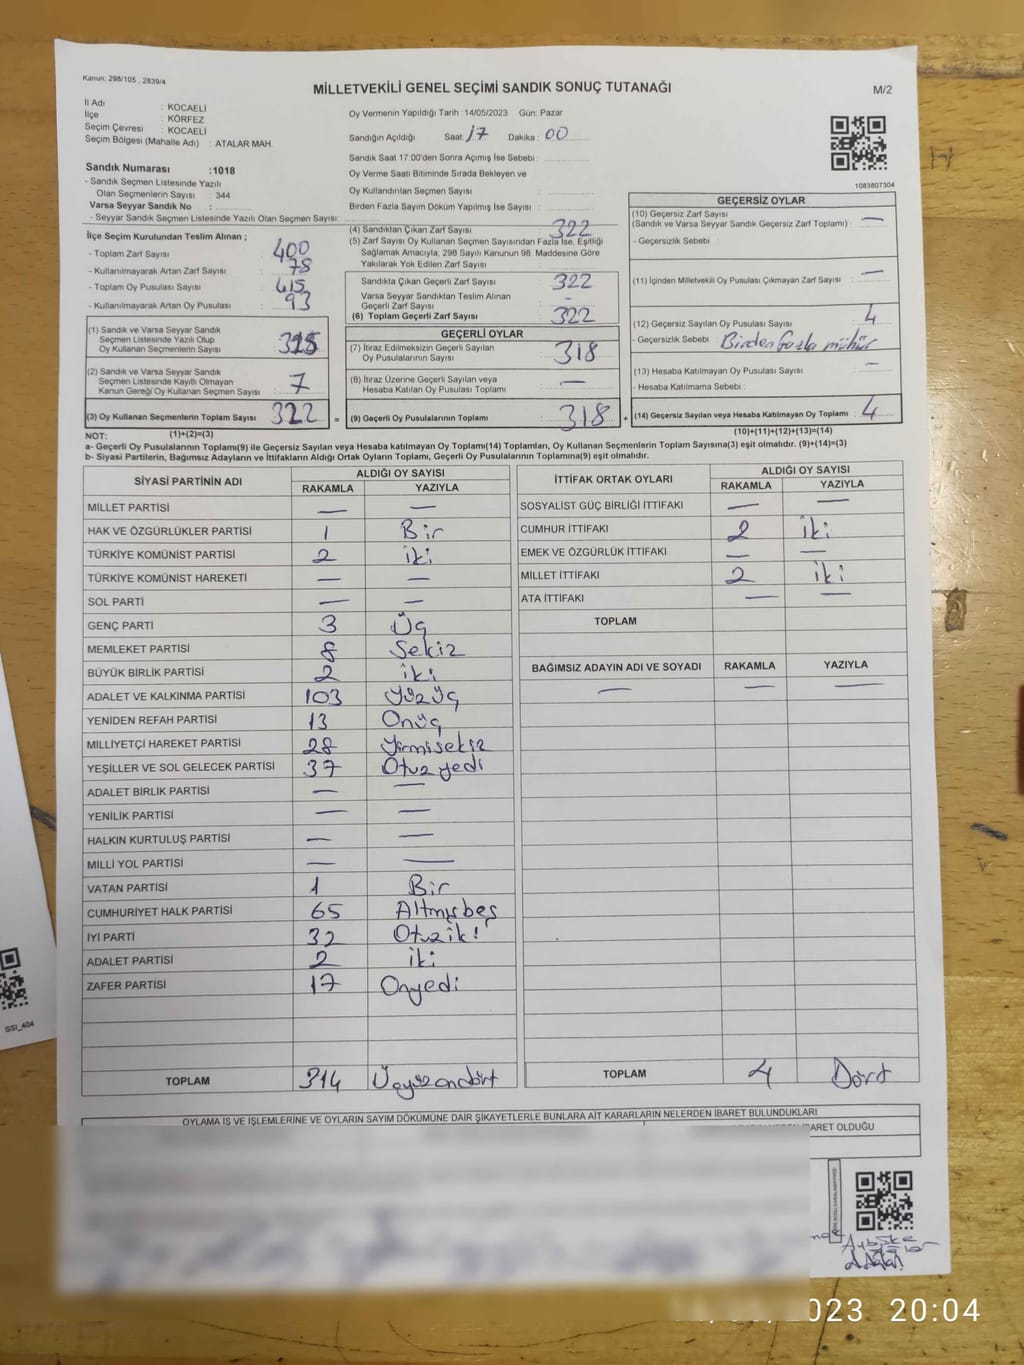 Kanun: 298/105 , 2839/4
MİLLETVEKİLİ GENEL SEÇİMİ SANDIK SONUÇ TUTANAĞI
M/2
İl Adı : KOCAELİ
İlçe : KÖRFEZ
Seçim Çevresi : KOCAELİ
Seçim Bölgesi (Mahalle Adı) : ATALAR MAH.
Oy Vermenin Yapıldığı Tarih :14/05/2023 Gün: Pazar
Sandığın Açıldığı Saat: 17 Dakika : 00
Sandık Saat 17:00'den Sonra Açımış İse Sebebi :
Oy Verme Saati Bitiminde Sırada Bekleyen ve
Oy Kullandırılan Seçmen Sayısı
Birden Fazla Sayım Döküm Yapılmış İse Sayısı :
1083807304
Sandık Numarası :1018
- Sandık Seçmen Listesinde Yazılı
Olan Seçmenlerin Sayısı : 344
Varsa Seyyar Sandık No :
- Seyyar Sandık Seçmen Listesinde Yazılı Olan Seçmen Sayısı:
İlçe Seçim Kurulundan Teslim Alınan ;
- Toplam Zarf Sayısı : 400
- Kullanılmayarak Artan Zarf Sayısı : 78
- Toplam Oy Pusulası Sayısı : 415
- Kullanılmayarak Artan Oy Pusulası : 93
(1) Sandık ve Varsa Seyyar Sandık
Seçmen Listesinde Yazılı Olup
Oy Kullanan Seçmenlerin Sayısı : 315
(2) Sandık ve Varsa Seyyar Sandık
Seçmen Listesinde Kayıtlı Olmayan
Kanun Gereği Oy Kullanan Seçmen Sayısı : 7
(3) Oy Kullanan Seçmenlerin Toplam Sayısı : 322 =
(4) Sandıktan Çıkan Zarf Sayısı : 322
(5) Zarf Sayısı Oy Kullanan Seçmen Sayısından Fazla İse, Eşitliği
Sağlamak Amacıyla, 298 Sayılı Kanunun 98. Maddesine Göre
Yakılarak Yok Edilen Zarf Sayısı :
Sandıkta Çıkan Geçerli Zarf Sayısı : 322
Varsa Seyyar Sandıktan Teslim Alınan
Geçerli Zarf Sayısı : -
(6) Toplam Geçerli Zarf Sayısı : 322
GEÇERLİ OYLAR
(7) İtiraz Edilmeksizin Geçerli Sayılan
Oy Pusulalarının Sayısı : 318
(8) İtiraz Üzerine Geçerli Sayılan veya
Hesaba Katılan Oy Pusulası Toplamı : —
(9) Geçerli Oy Pusulalarının Toplamı : 318 +
GEÇERSİZ OYLAR
(10) Geçersiz Zarf Sayısı
(Sandık ve Varsa Seyyar Sandık Geçersiz Zarf Toplamı) : —
- Geçersizlik Sebebi :
(11) İçinden Milletvekili Oy Pusulası Çıkmayan Zarf Sayısı : —
(12) Geçersiz Sayılan Oy Pusulası Sayısı : 4
- Geçersizlik Sebebi : Birden fazla mühür
(13) Hesaba Katılmayan Oy Pusulası Sayısı : —
- Hesaba Katılmama Sebebi :
(14) Geçersiz Sayılan veya Hesaba Katılmayan Oy Toplamı : 4
NOT: (1)+(2)=(3)
(10)+(11)+(12)+(13)=(14)
a- Geçerli Oy Pusulalarının Toplamı(9) ile Geçersiz Sayılan veya Hesaba katılmayan Oy Toplamı(14) Toplamları, Oy Kullanan Seçmenlerin Toplam Sayısına(3) eşit olmalıdır. (9)+(14)=(3)
b- Siyasi Partilerin, Bağımsız Adayların ve İttifakların Aldığı Ortak Oyların Toplamı, Geçerli Oy Pusulalarının Toplamına(9) eşit olmalıdır.
SİYASİ PARTİNİN ADI ALDIĞI OY SAYISI
RAKAMLA YAZIYLA
MİLLET PARTİSİ — —
HAK VE ÖZGÜRLÜKLER PARTİSİ 1 Bir
TÜRKİYE KOMÜNİST PARTİSİ 2 iki
TÜRKİYE KOMÜNİST HAREKETİ — —
SOL PARTİ — —
GENÇ PARTİ 3 Üç
MEMLEKET PARTİSİ 8 Sekiz
BÜYÜK BİRLİK PARTİSİ 2 iki
ADALET VE KALKINMA PARTİSİ 103 Yüzüç
YENİDEN REFAH PARTİSİ 13 Onüç
MİLLİYETÇİ HAREKET PARTİSİ 28 Yirmisekiz
YEŞİLLER VE SOL GELECEK PARTİSİ 37 Otuz yedi
ADALET BİRLİK PARTİSİ — —
YENİLİK PARTİSİ — —
HALKIN KURTULUŞ PARTİSİ — —
MİLLİ YOL PARTİSİ — —
VATAN PARTİSİ 1 Bir
CUMHURİYET HALK PARTİSİ 65 Altmışbeş
İYİ PARTİ 32 Otuziki
ADALET PARTİSİ 2 iki
ZAFER PARTİSİ 17 Onyedi
TOPLAM 314 Üçyüzondört
İTTİFAK ORTAK OYLARI ALDIĞI OY SAYISI
RAKAMLA YAZIYLA
SOSYALİST GÜÇ BİRLİĞİ İTTİFAKI — —
CUMHUR İTTİFAKI 2 iki
EMEK VE ÖZGÜRLÜK İTTİFAKI — —
MİLLET İTTİFAKI 2 iki
ATA İTTİFAKI — —
TOPLAM
BAĞIMSIZ ADAYIN ADI VE SOYADI RAKAMLA YAZIYLA
— — —
TOPLAM 4 Dört
OYLAMA İŞ VE İŞLEMLERİNE VE OYLARIN SAYIM DÖKÜMÜNE DAİR ŞİKAYETLERLE BUNLARA AİT KARARLARIN NELERDEN İBARET BULUNDUKLARI
BARET OLDUĞU
SS1_404
023 20:04